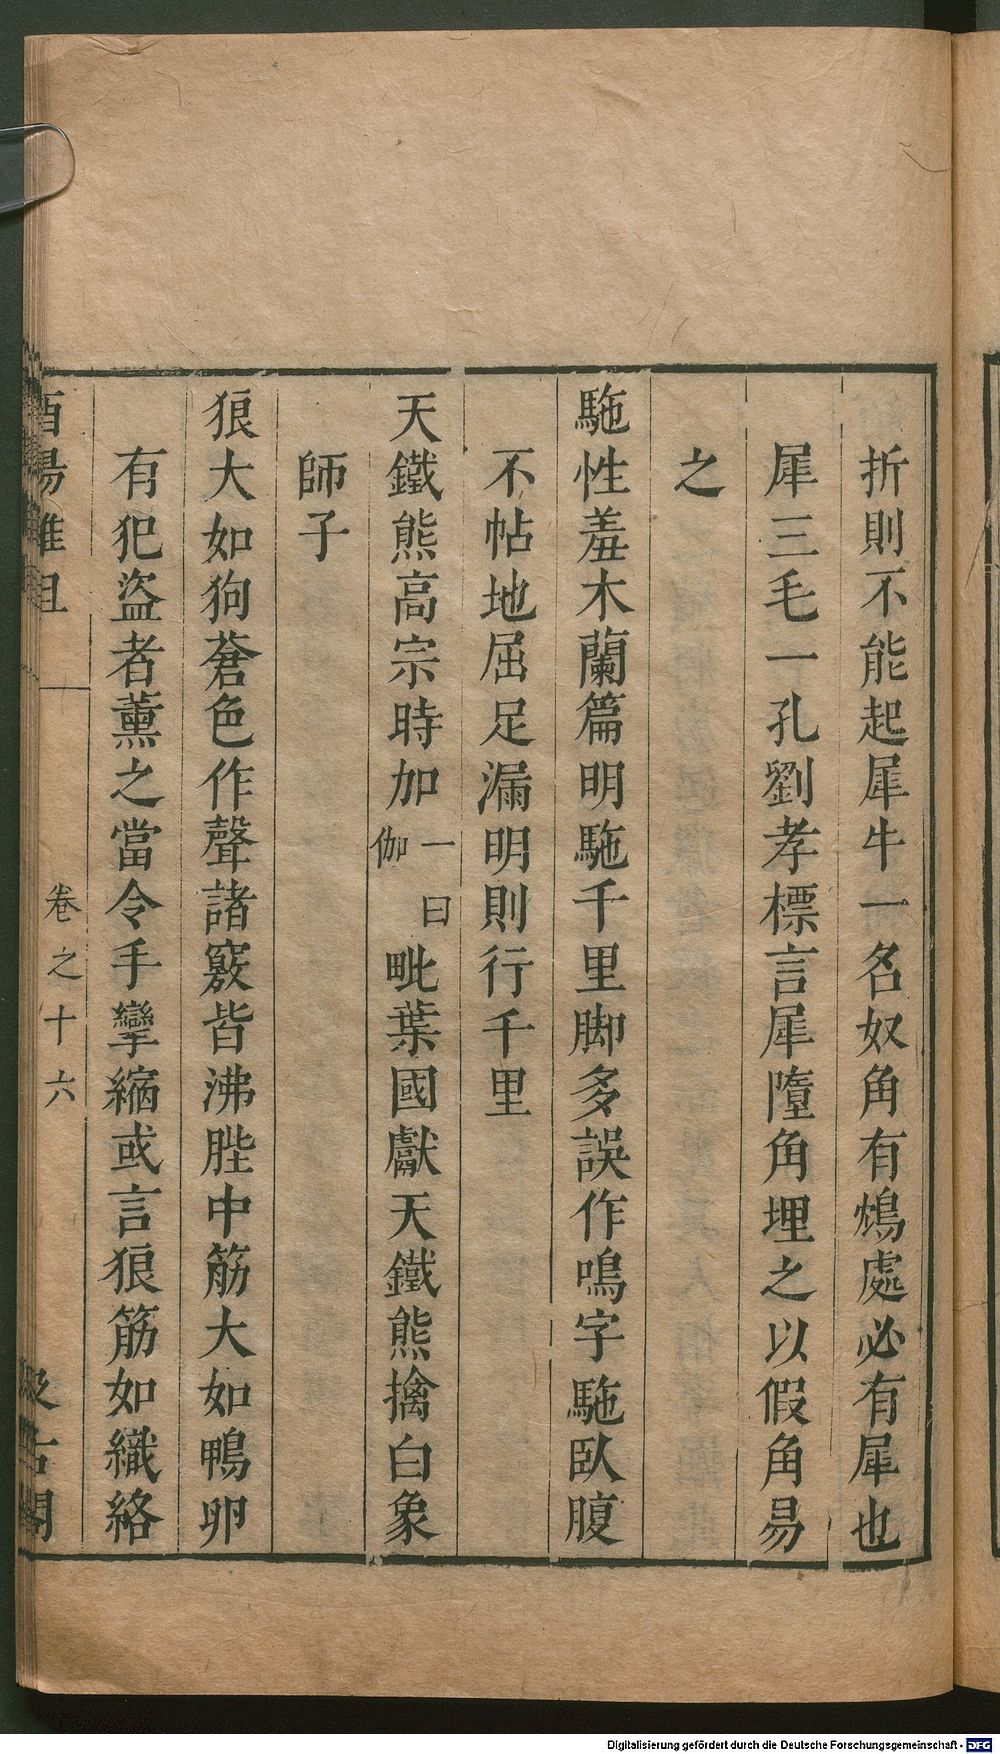 折則不能起犀牛一名奴角有鴆處必有犀也
犀三毛一孔劉孝標言犀墮角埋之以假角易
之
駞性羞木蘭篇明駞千里脚多誤作鳴字駞臥腹
不帖地屈足漏明則行千里
天鐵熊高宗時加一曰伽毗葉國獻天鐵熊擒白象
師子
狼大如狗蒼色作聲諸竅皆沸䏶中筋大如鴨卵
有犯盜者薰之當令手攣縮或言狼筋如織絡
酉陽雜俎 卷之十六 汲古閣
Digitalisierung gefördert durch die Deutsche Forschungsgemeinschaft - DFG